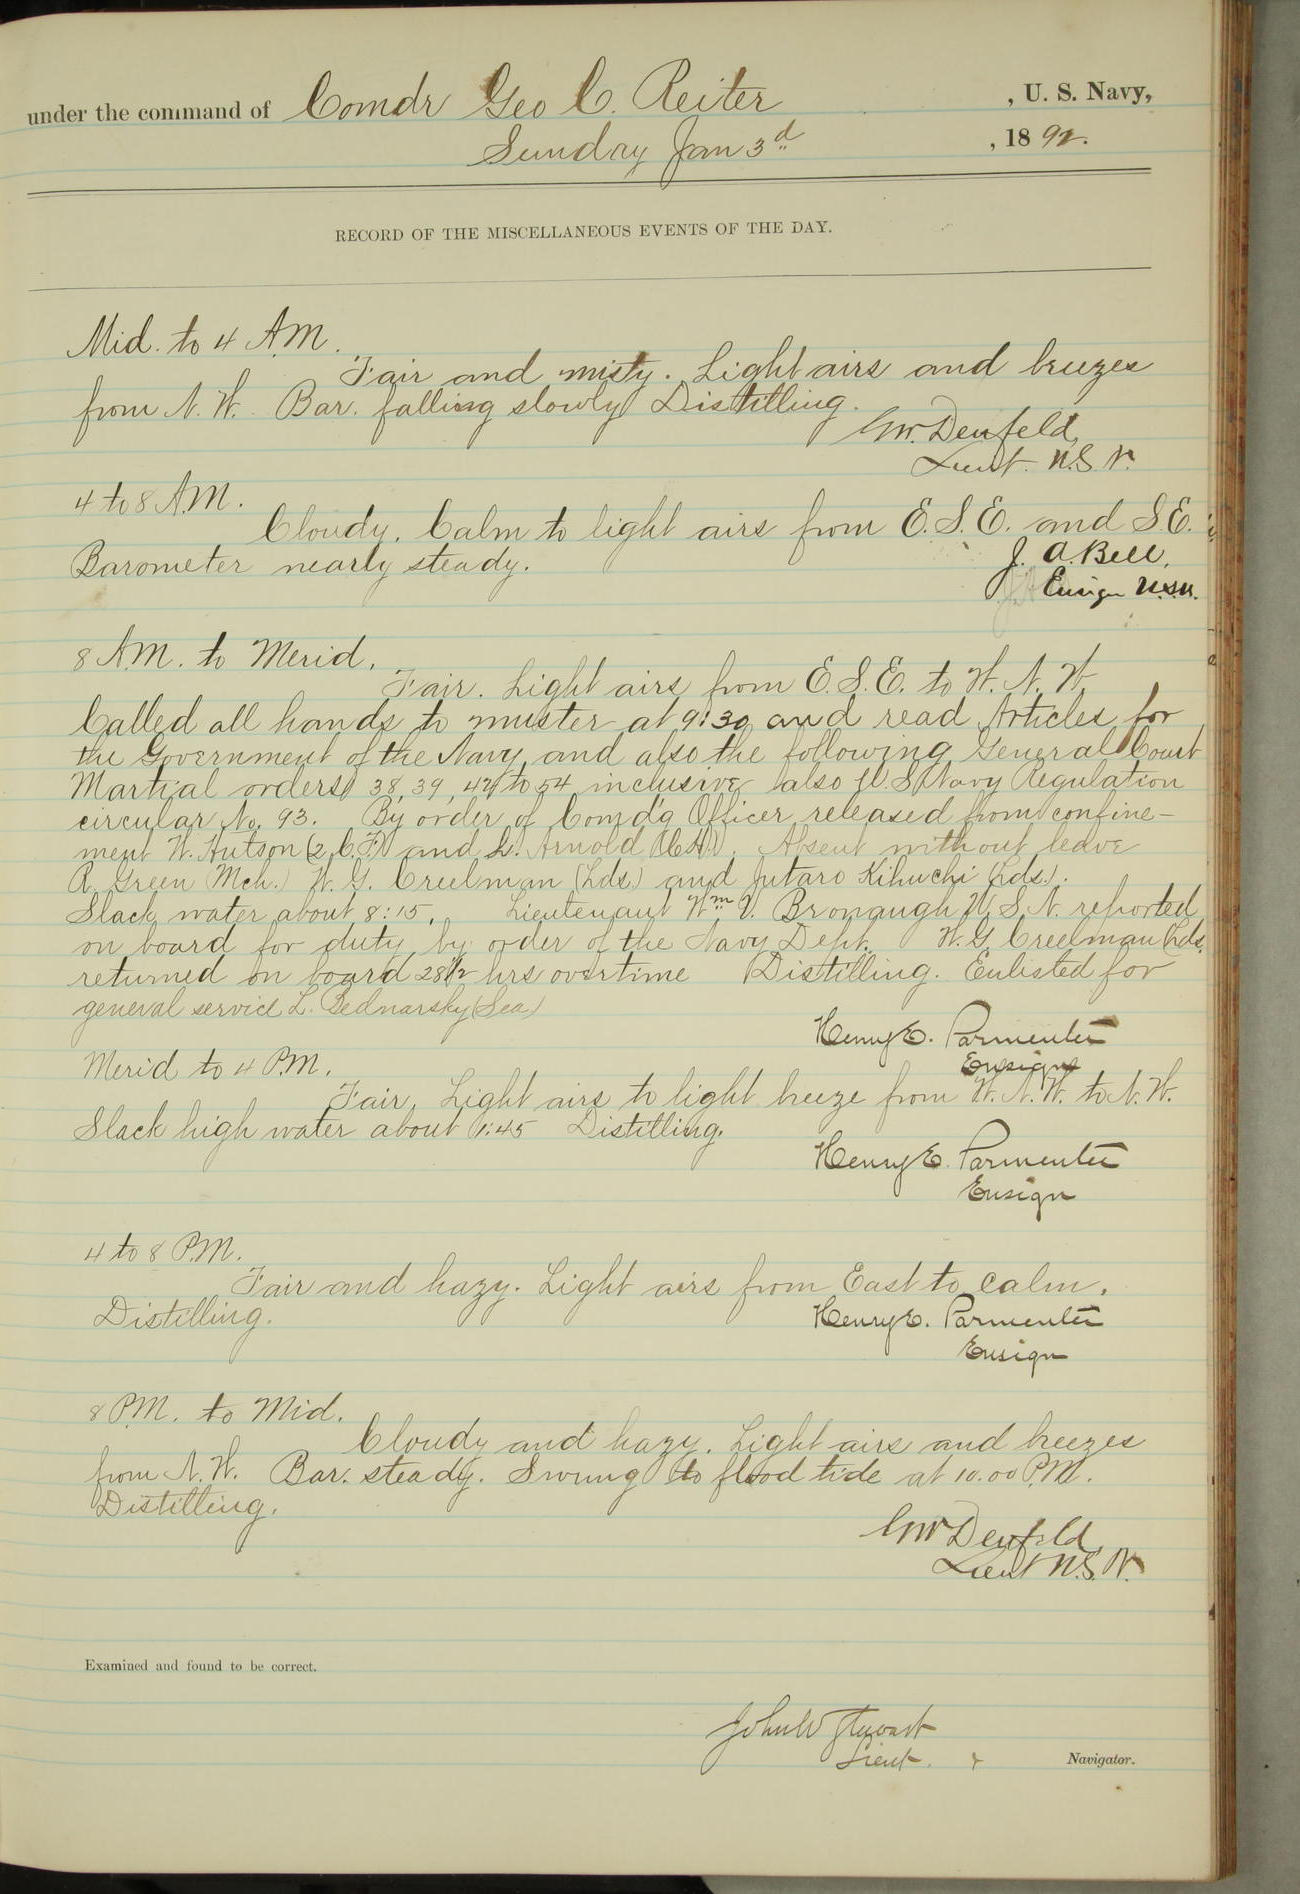 under the command of Comdr Geo C. Reiter , U. S. Navy,
Sunday Jan 3d , 1892.
RECORD OF THE MISCELLANEOUS EVENTS OF THE DAY.
Mid. to 4 A.M.
Fair and misty. Light airs and breezes
from N. W. Bar. falling slowly Distilling.
GW. Denfeld,
Lieut. U.S.N.
4 to 8 A.M.
Cloudy. Calm to light airs from E.S.E. and S.E.
Barometer nearly steady.
J. A. Bell,
Ensign U.S.N.
8 A.M. to Merid.
Fair. Light airs from E.S.E. to W. N. W.
Called all hands to muster at 9:30 and read Articles for
the Government of the Navy, and also the following General Court
Martial orders 38, 39, 42 to 54 inclusive also U.S. Navy Regulation
circular No. 93. By order of Comd'g Officer released from confine-
ment W. Hutson (2 C.F.) and L. Arnold . Absent without leave
R. Green (Mch.) W. G. Creelman (Lds.) and Jutaro Kihuchi (Lds.).
Slack water about 8:15. Lieutenant Wm V. Bronaugh U.S.N. reported
on board for duty by order of the Navy Dept. W. G. Creelman (Lds.
returned on board 28 1/2 hrs overtime Distilling. Enlisted for
general service L. Bednarsky (Sea)
Henry E. Parmenter
Ensign
Merid to 4 P.M.
Fair. Light airs to light breeze from W.N.W. to N.W.
Slack high water about 1:45 Distilling.
Henry E. Parmenter
Ensign
4 to 8 P.M.
Fair and hazy. Light airs from East to calm.
Distilling.
Henry E. Parmenter
Ensign
8 P.M. to Mid.
Cloudy and hazy. Light airs and breezes
from N.W. Bar. steady. Swung to flood tide at 10.00 P.M.
Distilling.
GW Denfeld,
Lieut U.S.N.
Examined and found to be correct.
John W Stewart
Lieut. Navigator.